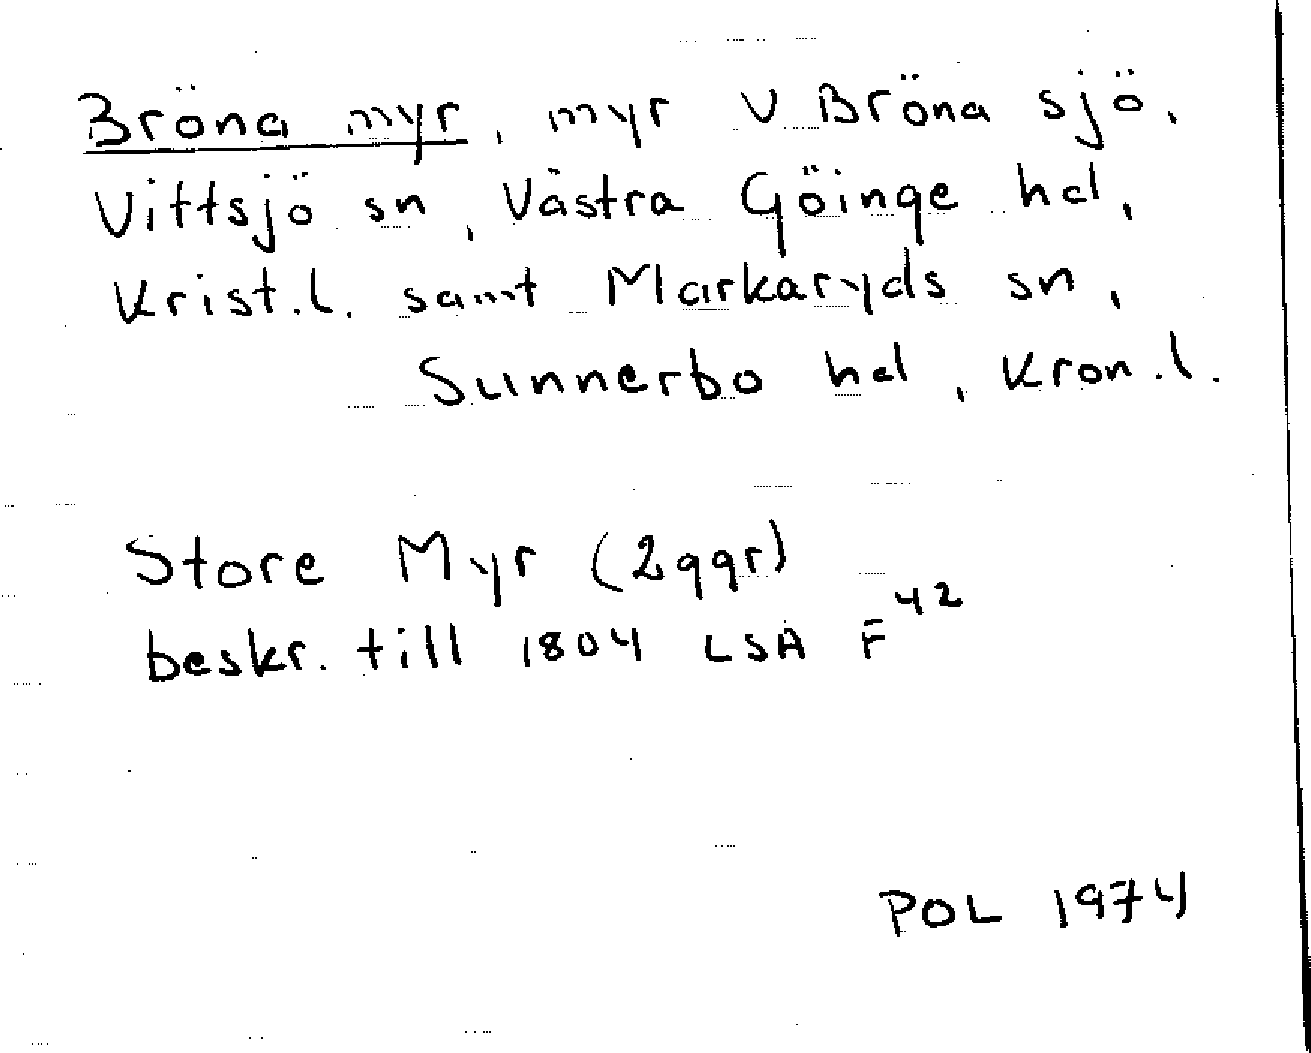 Bröna myr, myr V Bröna sjö,
Vittsjö sn, Västra Göinge hd,
Krist.l. samt Markaryds sn,
Sunnerbo hd, Kron.l.
Store Myr (2ggr)
beskr. till 1804 LSA F⁴²
POL 1974